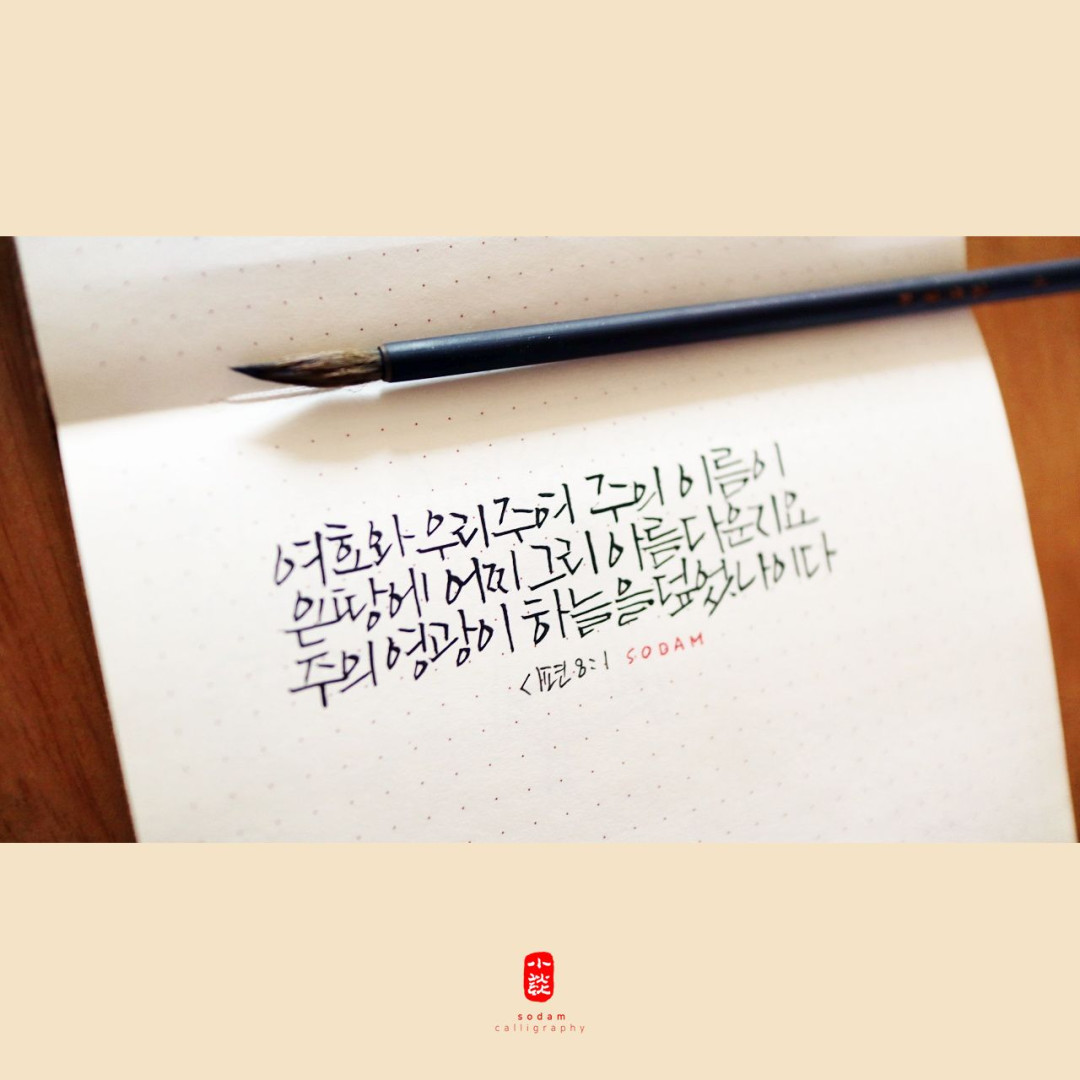 여호와 우리 주여 주의 이름이
온 땅에 어찌 그리 아름다운지요
주의 영광이 하늘을 덮었나이다
<시편 8:1 SODAM
小談
sodam
calligraphy